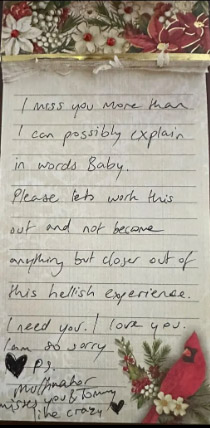 I miss you more than
I can possibly explain
in words Baby.
Please lets work this
out and not become
anything but closer out of
this hellish experience.
I need you. I love you.
I am so sorry
P.S.
misses you &
like crazy